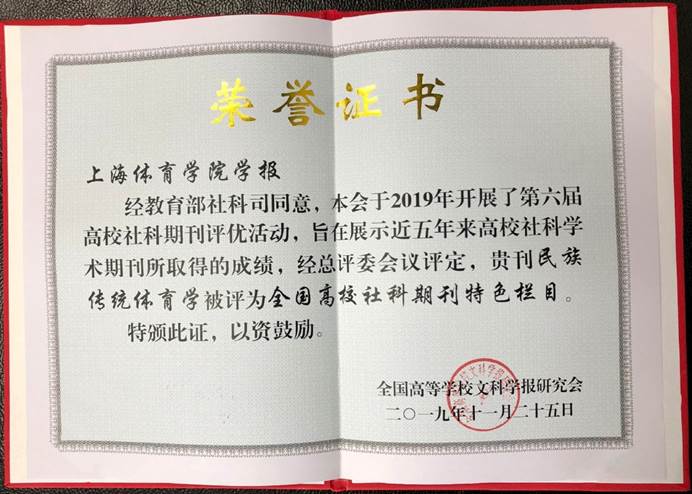 荣誉证书
上海体育学院学报
经教育部社科司同意，本会于2019年开展了第六届
高校社科期刊评优活动，旨在展示近五年来高校社科学
术期刊所取得的成绩，经总评委会议评定，贵刊民族
传统体育学被评为全国高校社科期刊特色栏目。
特颁此证，以资鼓励。
全国高等学校文科学报研究会
二〇一九年十一月二十五日